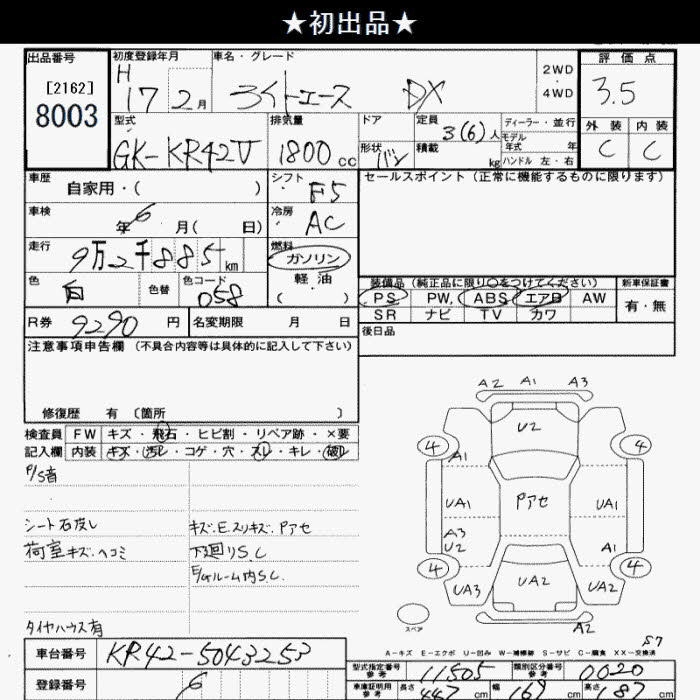 ★初出品★
出品番号
[2162]
8003
初度登録年月
H 17 2月
車名・グレード
ライトエース DX
2WD
4WD
評価点
3.5
外装 内装
C C
型式
GK-KR42V
排気量
1800 cc
ドア
形状 バン
定員 3(6)人
積載 kg
ディーラー・並行
モデル年式 年
ハンドル 左・右
車歴
自家用・( )
シフト
F5
セールスポイント(正常に機能するものに限ります)
車検
年 6 月( 日)
冷房
AC
走行
9万2千885 km
燃料
ガソリン
軽・油
( )
色
白
色替
色コード
058
装備品(純正品に限り○をつけてください)
新車保証書
PS PW ABS エアB AW
有・無
SR ナビ TV カワ
R券 9290 円
名変期限 月 日
後日品
注意事項申告欄(不具合内容等は具体的に記入して下さい)
修復歴 有 〔箇所 〕
検査員
記入欄
FW キズ・飛石・ヒビ割・リペア跡・×要
内装 キズ・汚レ・コゲ・穴・スレ・キレ・破レ
P/S音
シート石皮し
キズ.E.スリキズ.Pアセ
荷室キズ.ヘコミ
下廻りS.C
E/gルーム内S.C.
タイヤハウス有
A2 A1 A3
U2
4 4
A1
UA1 Pアセ UA1
A3
U2
A1
4 4
UA3 UA2 UA2
スペア
A2
S7
A-キズ E-エクボ U-凹み W-補修跡 S-サビ C-腐食 XX-交換済
車台番号
KR42-5043253
登録番号
6
型式指定番号
参考
11505
類別区分番号
参考
0020
車庫証明用
参考
長さ 447 cm
幅 169 cm
高さ 187 cm